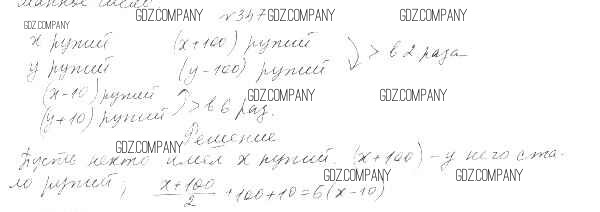 GDZ.COMPANY №347 GDZ.COMPANY GDZ.COMPANY
GDZ.COMPANY
x рупий (x+100) рупий > в 2 раза
y рупий (y-100) рупий
(x-10) рупий > в 6 раз.
(y+10) рупий
GDZ.COMPANY GDZ.COMPANY
Решение
GDZ.COMPANY
Пусть некто имел x рупий. (x+100) - у него ста-
ло рупий, (x+100)/2 +100+10=6(x-10)
GDZ.COMPANY GDZ.COMPANY